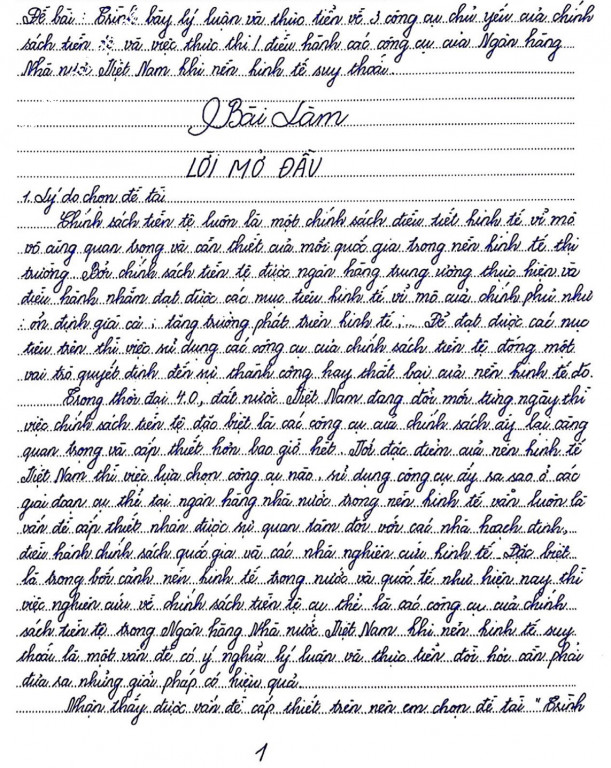 Đề bài : Trình bày lý luận và thực tiễn về 3 công cụ chủ yếu của chính
sách tiền tệ và việc thực thi / điều hành các công cụ của Ngân hàng
Nhà nước Việt Nam khi nền kinh tế suy thoái.
Bài Làm
LỜI MỞ ĐẦU
1. Lý do chọn đề tài
Chính sách tiền tệ luôn là một chính sách điều tiết kinh tế vĩ mô
vô cùng quan trọng và cần thiết của mỗi quốc gia trong nền kinh tế thị
trường. Bởi chính sách tiền tệ được ngân hàng trung ương thực hiện và
điều hành nhằm đạt được các mục tiêu kinh tế vĩ mô của chính phủ như
: ổn định giá cả ; tăng trưởng phát triển kinh tế ;... Để đạt được các mục
tiêu trên thì việc sử dụng các công cụ của chính sách tiền tệ đóng một
vai trò quyết định đến sự thành công hay thất bại của nền kinh tế đó.
Trong thời đại 4.0, đất nước Việt Nam đang đổi mới từng ngày thì
việc chính sách tiền tệ đặc biệt là các công cụ của chính sách ấy lại càng
quan trọng và cấp thiết hơn bao giờ hết. Với đặc điểm của nền kinh tế
Việt Nam thì việc lựa chọn công cụ nào, sử dụng công cụ ấy ra sao ở các
giai đoạn cụ thể tại ngân hàng nhà nước trong nền kinh tế vẫn luôn là
vấn đề cấp thiết nhận được sự quan tâm đối với các nhà hoạch định,
điều hành chính sách quốc gia và các nhà nghiên cứu kinh tế. Đặc biệt
là trong bối cảnh nền kinh tế trong nước và quốc tế như hiện nay thì
việc nghiên cứu về chính sách tiền tệ cụ thể là các công cụ của chính
sách tiền tệ trong Ngân hàng Nhà nước Việt Nam khi nền kinh tế suy
thoái là một vấn đề có ý nghĩa lý luận và thực tiễn đòi hỏi cần phải
đưa ra những giải pháp có hiệu quả.
Nhận thấy được vấn đề cấp thiết trên nên em chọn đề tài " Trình
1